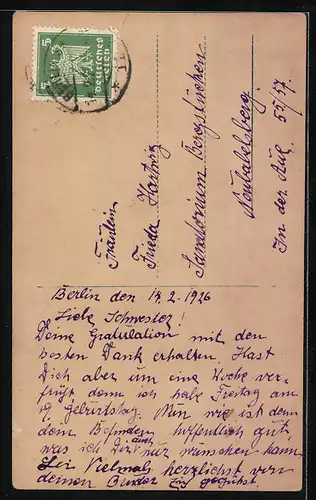 5 5
Deutsches
Reich
Fräulein
Frieda Hartwig
Sanatorium Bergsküchen
Neubabelsberg.
In der Aue 55/57
Berlin den 17.2.1926
Liebe Schwester!
Deine Gratulation mit den
besten Dank erhalten. Hast
Dich aber um eine Woche ver-
früht denn ich habe Freitag am
19 Geburtstag. Nun wie ist denn
dem Befinden hoffentlich gut,
was ich Dir auch nur wünschen kann.
Sei Vielmals herzlichst von
deinen Bruder gegrüßt.